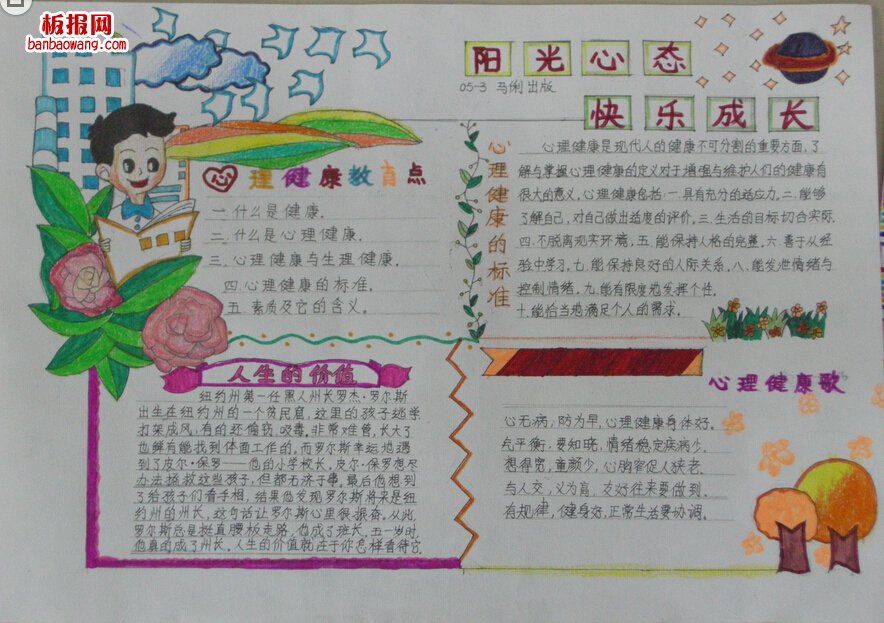 板报网
banbaowang.com
阳光心态
05-3 马俐出版
快乐成长
心理健康教育点
一.什么是健康.
二.什么是心理健康.
三.心理健康与生理健康.
四.心理健康的标准.
五.素质及它的含义.
心理健康的标准
心理健康是现代人的健康不可分割的重要方面,了
解与掌握心理健康的定义对于增强与维护人们的健康有
很大的意义,心理健康包括:一.具有充分的适应力.二.能够
了解自己,对自己做出适度的评价.三.生活的目标切合实际.
四.不脱离现实环境,五.能保持人格的完整.六.善于从经
验中学习,七.能保持良好的人际关系.八.能发泄情绪与
控制情绪.九.能有限度地发挥个性.
十.能恰当地满足个人的需求.
人生的价值
纽约州第一任黑人州长罗杰·罗尔斯
出生在纽约州的一个贫民窟,这里的孩子逃学
打架成风,有的还偷窃.吸毒.非常难管,长大了
也鲜有能找到体面工作的.而罗尔斯幸运地遇
到了皮尔·保罗——他的小学校长.皮尔·保罗想尽
办法拯救这些孩子,但都无济于事.最后他想到
了给孩子们看手相,结果他发现罗尔斯将来是纽
约州的州长,这句话让罗尔斯心里很振奋.从此,
罗尔斯总是挺直腰板走路,他成了班长,五一岁时,
他真的成了州长.人生的价值就在于你怎样看待它.
心理健康歌
心无病,防为早,心理健康身体好.
气平衡,要知晓,情绪稳定疾病少.
想得宽,童颜少,心胸容促人状老.
与人交,义为高,友好往来要做到.
有规律,健身好,正常生活要协调.